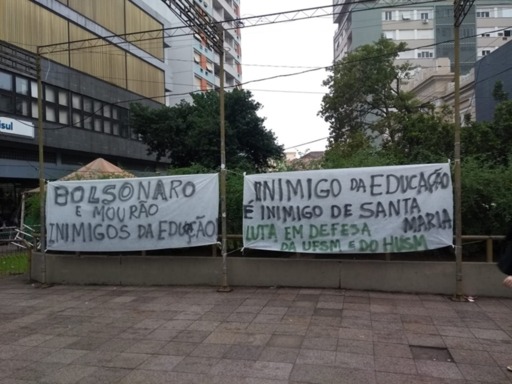 BOLSONARO
E MOURÃO
INIMIGOS DA EDUÇÃO
INIMIGO DA EDUCAÇÃO
É INIMIGO DE SANTA
MARIA
LUTA EM DEFESA
DA UFSM E DO HUSM